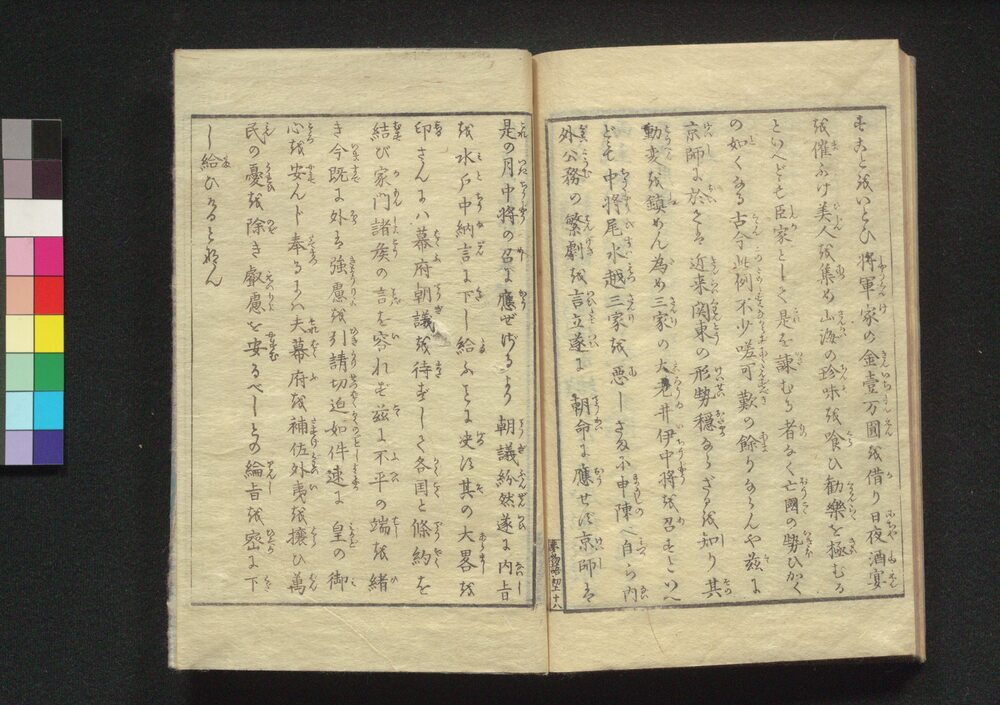 すこと越いとひ将軍家の金壹万圓越借り日夜酒宴
越催ふけ美人越集め山海の珍味越喰ひ勧樂を極むる
といへども臣家として是を諫むる者なく亡國の勢ひかく
の如くなる古今此例不少嗟可歎の餘りならんや茲に
京師に於ては近来関東の形勢穏ならざる越知り其
動変越鎮めん為め三家の大老井伊中将越召すといへ
ども中将尾水越三家越悪し さ 申陳 自ら内
外公務の繁劇越言立遂に 朝命に應せず京師は
夢物語 初上 十八
是の月中将の召に應ぜざるより 朝議紛然遂に内旨
越水戸中納言に下し給ふとに 其の大畧越
印さんには幕府朝議越待ずして各国と條約を
結び家門諸侯の言を容れず茲に不平の端越緒
き今既に外は強慮越引請切迫如件速に 皇の御
心越安んじ奉るには夫幕府越補佐外夷越攘ひ萬
民の憂越除き叡慮を安るべしとの綸旨越密に下
し給ひけるとなん